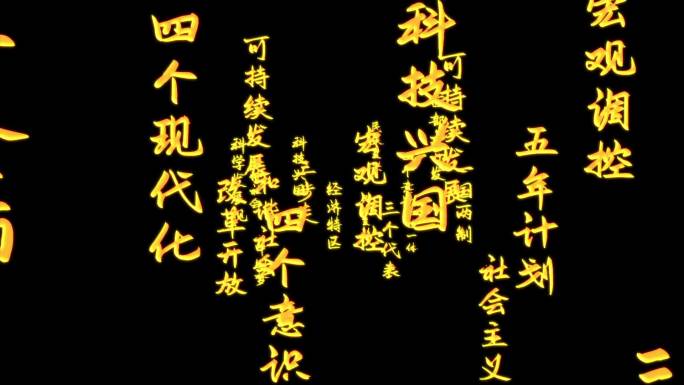 四个现代化
可持续发展
科学发展观
改革开放
和谐社会
科技兴国
四个意识
经济特区
宏观调控
三个代表
科技兴国
可持续发展
一国两制
社会主义
五年计划
宏观调控
二